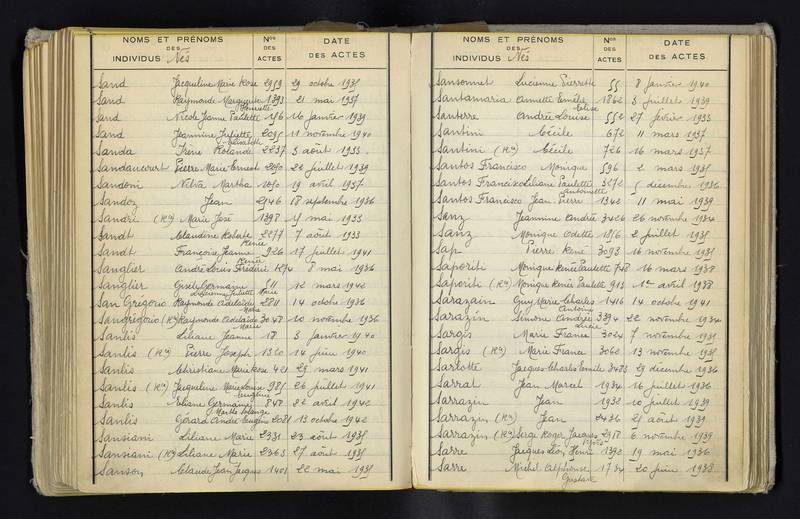 NOMS ET PRÉNOMS
DES
INDIVIDUS Nés
Nos
DES
ACTES
DATE
DES ACTES
Sand Jacqueline Marie Rose 2959 29 octobre 1935
Sand Raymonde Marguerite 1393 21 mai 1937
Sand Nicole Jeanne Paulette 156 16 janvier 1939
Sand Jeannine Juliette 2095 11 novembre 1940
Elisabeth
Sanda Irène Rolande 2237 3 août 1933
Sandaucourt Pierre Marie Ernest 2090 22 juillet 1939
Sandoni Nelva Martha 1090 19 avril 1937
Sandoz Jean 2546 18 septembre 1936
Sandri (Rn) Marie José 1398 mai 1933
Sandt Claudine Roberte 2277 7 août 1933
Renée
Sandt Françoise Jeanne 926 17 juillet 1941
Renée
Sanglier André Louis Frédéric 1274 8 mai 1936
Sanglier Gisèle Germaine 511 12 mars 1942
San Grigorio Raymonde Adelaïde 2811 14 octobre 1936
Marie
Sangrigorio (Rn) Raymonde Adelaïde 3048 10 novembre 1936
Marie
Sanlis Liliane Jeanne 18 3 janvier 1940
Sanlis (Rn) Pierre Joseph 1320 14 juin 1940
Sanlis Christiane Marie Rose 421 29 mars 1941
Sanlis (Rn) Jacqueline Marie Louise 981 26 juillet 1941
Eugénie
Sanlis Eliane Germaine 848 22 avril 1942
Marthe Solange
Sanlis Gérard André Eugène 2081 13 octobre 1942
Sansiani Liliane Marie 2331 23 août 1935
Sansiani (Rn) Liliane Marie 2363 27 août 1935
Sanson Claude Jean Jacques 1401 22 mai 1935
NOMS ET PRÉNOMS
DES
INDIVIDUS Nés
Nos
DES
ACTES
DATE
DES ACTES
Sansonnet Lucienne Pierrette 55 8 janvier 1940
Santamaria Annette Emélie 1862 3 juillet 1939
Elise
Santerre Andrée Louise 552 27 février 1933
Santini Cécile 672 11 mars 1937
Santini (Rn) Cécile 726 16 mars 1937
Santos Francisco Monique 596 2 mars 1935
Santos Francisco Liliane Paulette 3272 5 décembre 1936
Antoinette
Santos Francisco Jean Pierre 1342 11 mai 1939
Sanz Jeannine Andrée 3426 26 novembre 1934
Sanz Monique Odette 1856 2 juillet 1935
Sap Pierre René 3093 16 novembre 1935
Saporiti Monique Renée Paulette 748 16 mars 1938
Saporiti (Rn) Monique Renée Paulette 913 1er avril 1938
Sarazain Guy Marie Charles 1416 14 octobre 1941
Antoine
Sarazin Simone Andrée 3394 22 novembre 1934
Lucie
Sargis Marie France 3024 7 novembre 1935
Sargis (Rn) Marie France 3060 13 novembre 1935
Sarlotte Jacques Charles Emile 3483 29 décembre 1936
Sarrat Jean Marcel 1934 16 juillet 1936
Sarrazin Jean 1932 10 juillet 1939
Sarrazin (Rn) Jean 2426 25 août 1939
Sarrazin (Rn) Serge Roger Jacques 2958 6 novembre 1939
Sarre Jacques Léon Henri 1392 19 mai 1936
Sarre Michel Alphonse 1732 20 juin 1938
Gustave